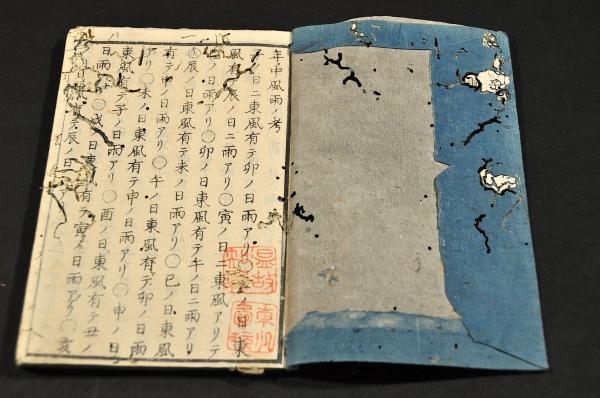 年中風雨ノ考
子ノ日ニ東風有テ卯ノ日雨アリ〇ノ日東
風有テ辰ノ日ニ雨アリ〇寅ノ日ニ東風アリテ
ノ日雨アリ〇卯ノ日東風有テ午ノ日ニ雨アリ
〇辰ノ日東風有テ未ノ日雨アリ〇巳ノ日東風
有テ申ノ日雨アリ〇午ノ日東風有テ卯ノ日雨
アリ〇未ノ日東風有テ申ノ日雨アリ〇申ノ日
東風有テ子ノ日雨アリ〇酉ノ日東風有テ丑ノ
日雨〇戌ノ日東有テ寅ノ日雨アリ〇亥
テ辰ノ日